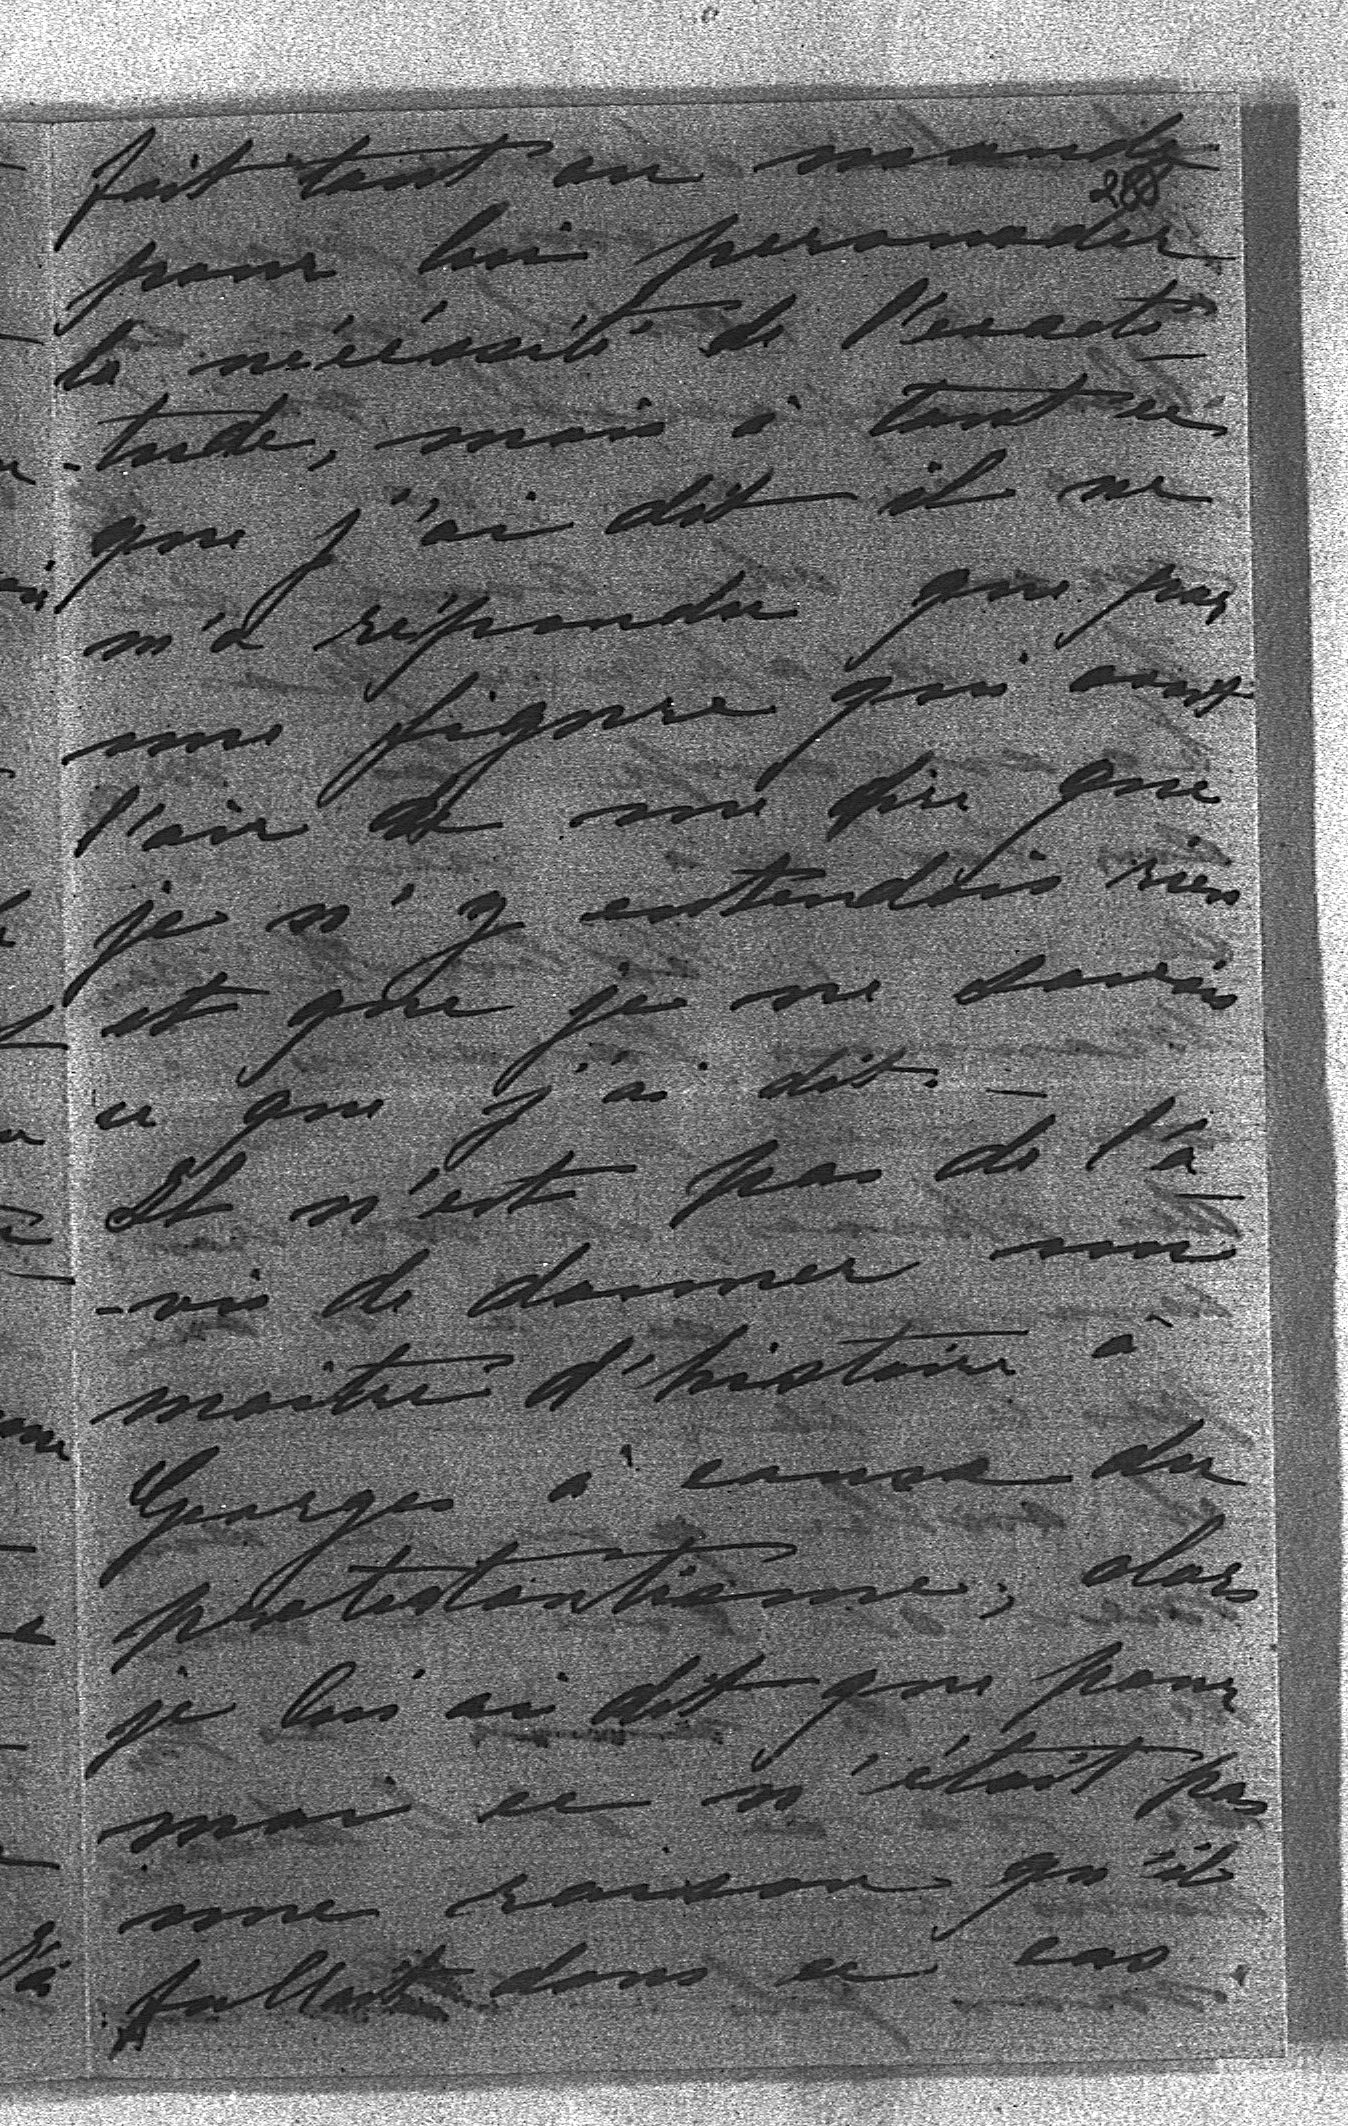 fait tant au monde
288
pour lui persuader
la nécéssité de l'exacti
-tude, mais à tout ce
que j'ai dit il ne
m'a répondu que par
une figure qui avait
l'air de me dire que
je n'y entendais rien
et que je ne savais
ce que j'ai dit. —
Il n'est pas de l'a-
-vis de donner un
maitre d'histoire à
Georges à cause du
protestantisme, alors
je lui ai dit que pour
moi ce n'était pas
une raison qu'il
fallait dans ce cas